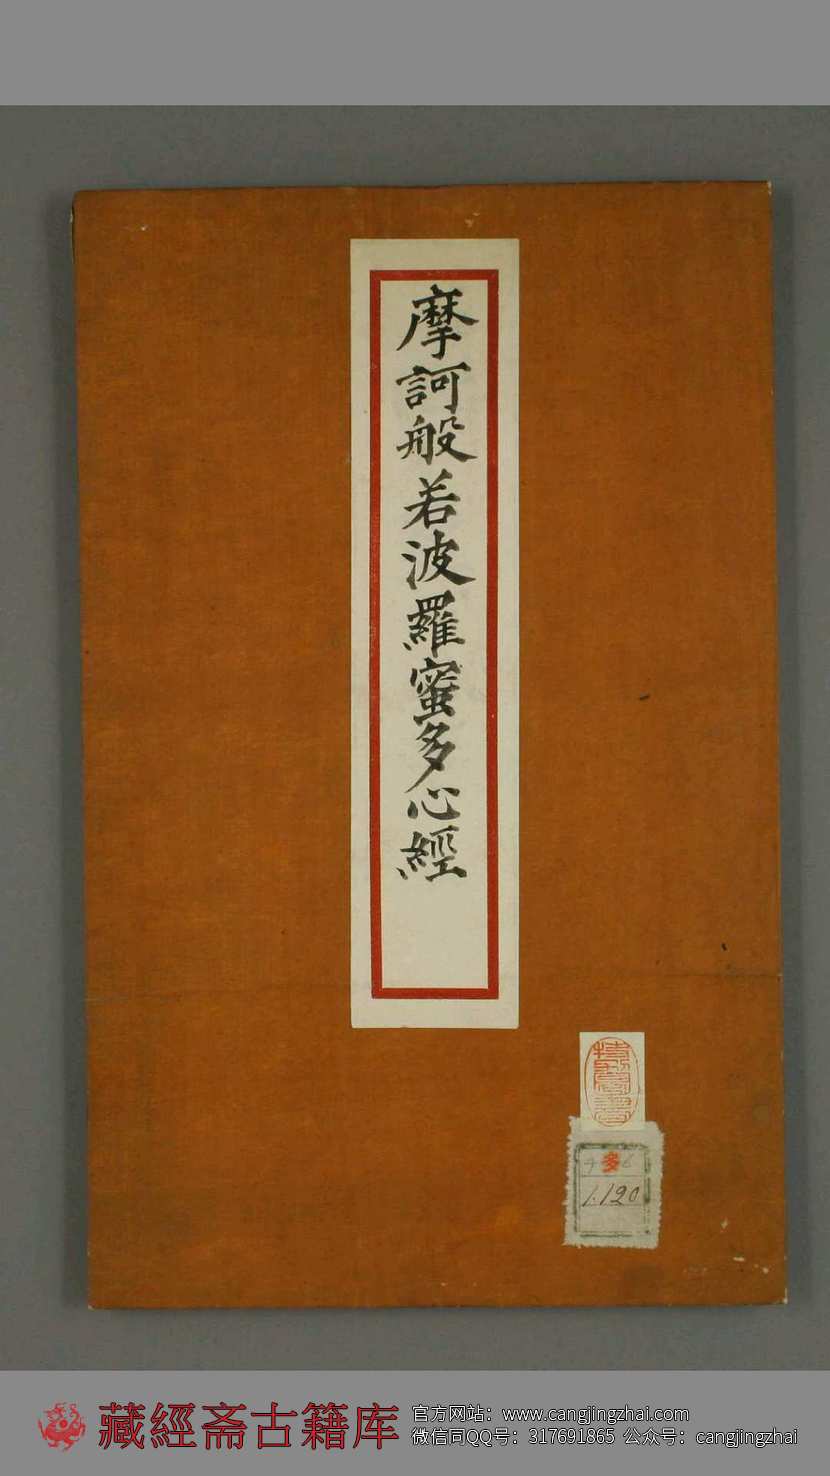 摩訶般若波羅蜜多心經
多
1.120
藏經斋古籍库
官方网站：www.cangjingzhai.com
微信同QQ号：317691865 公众号：cangjingzhai